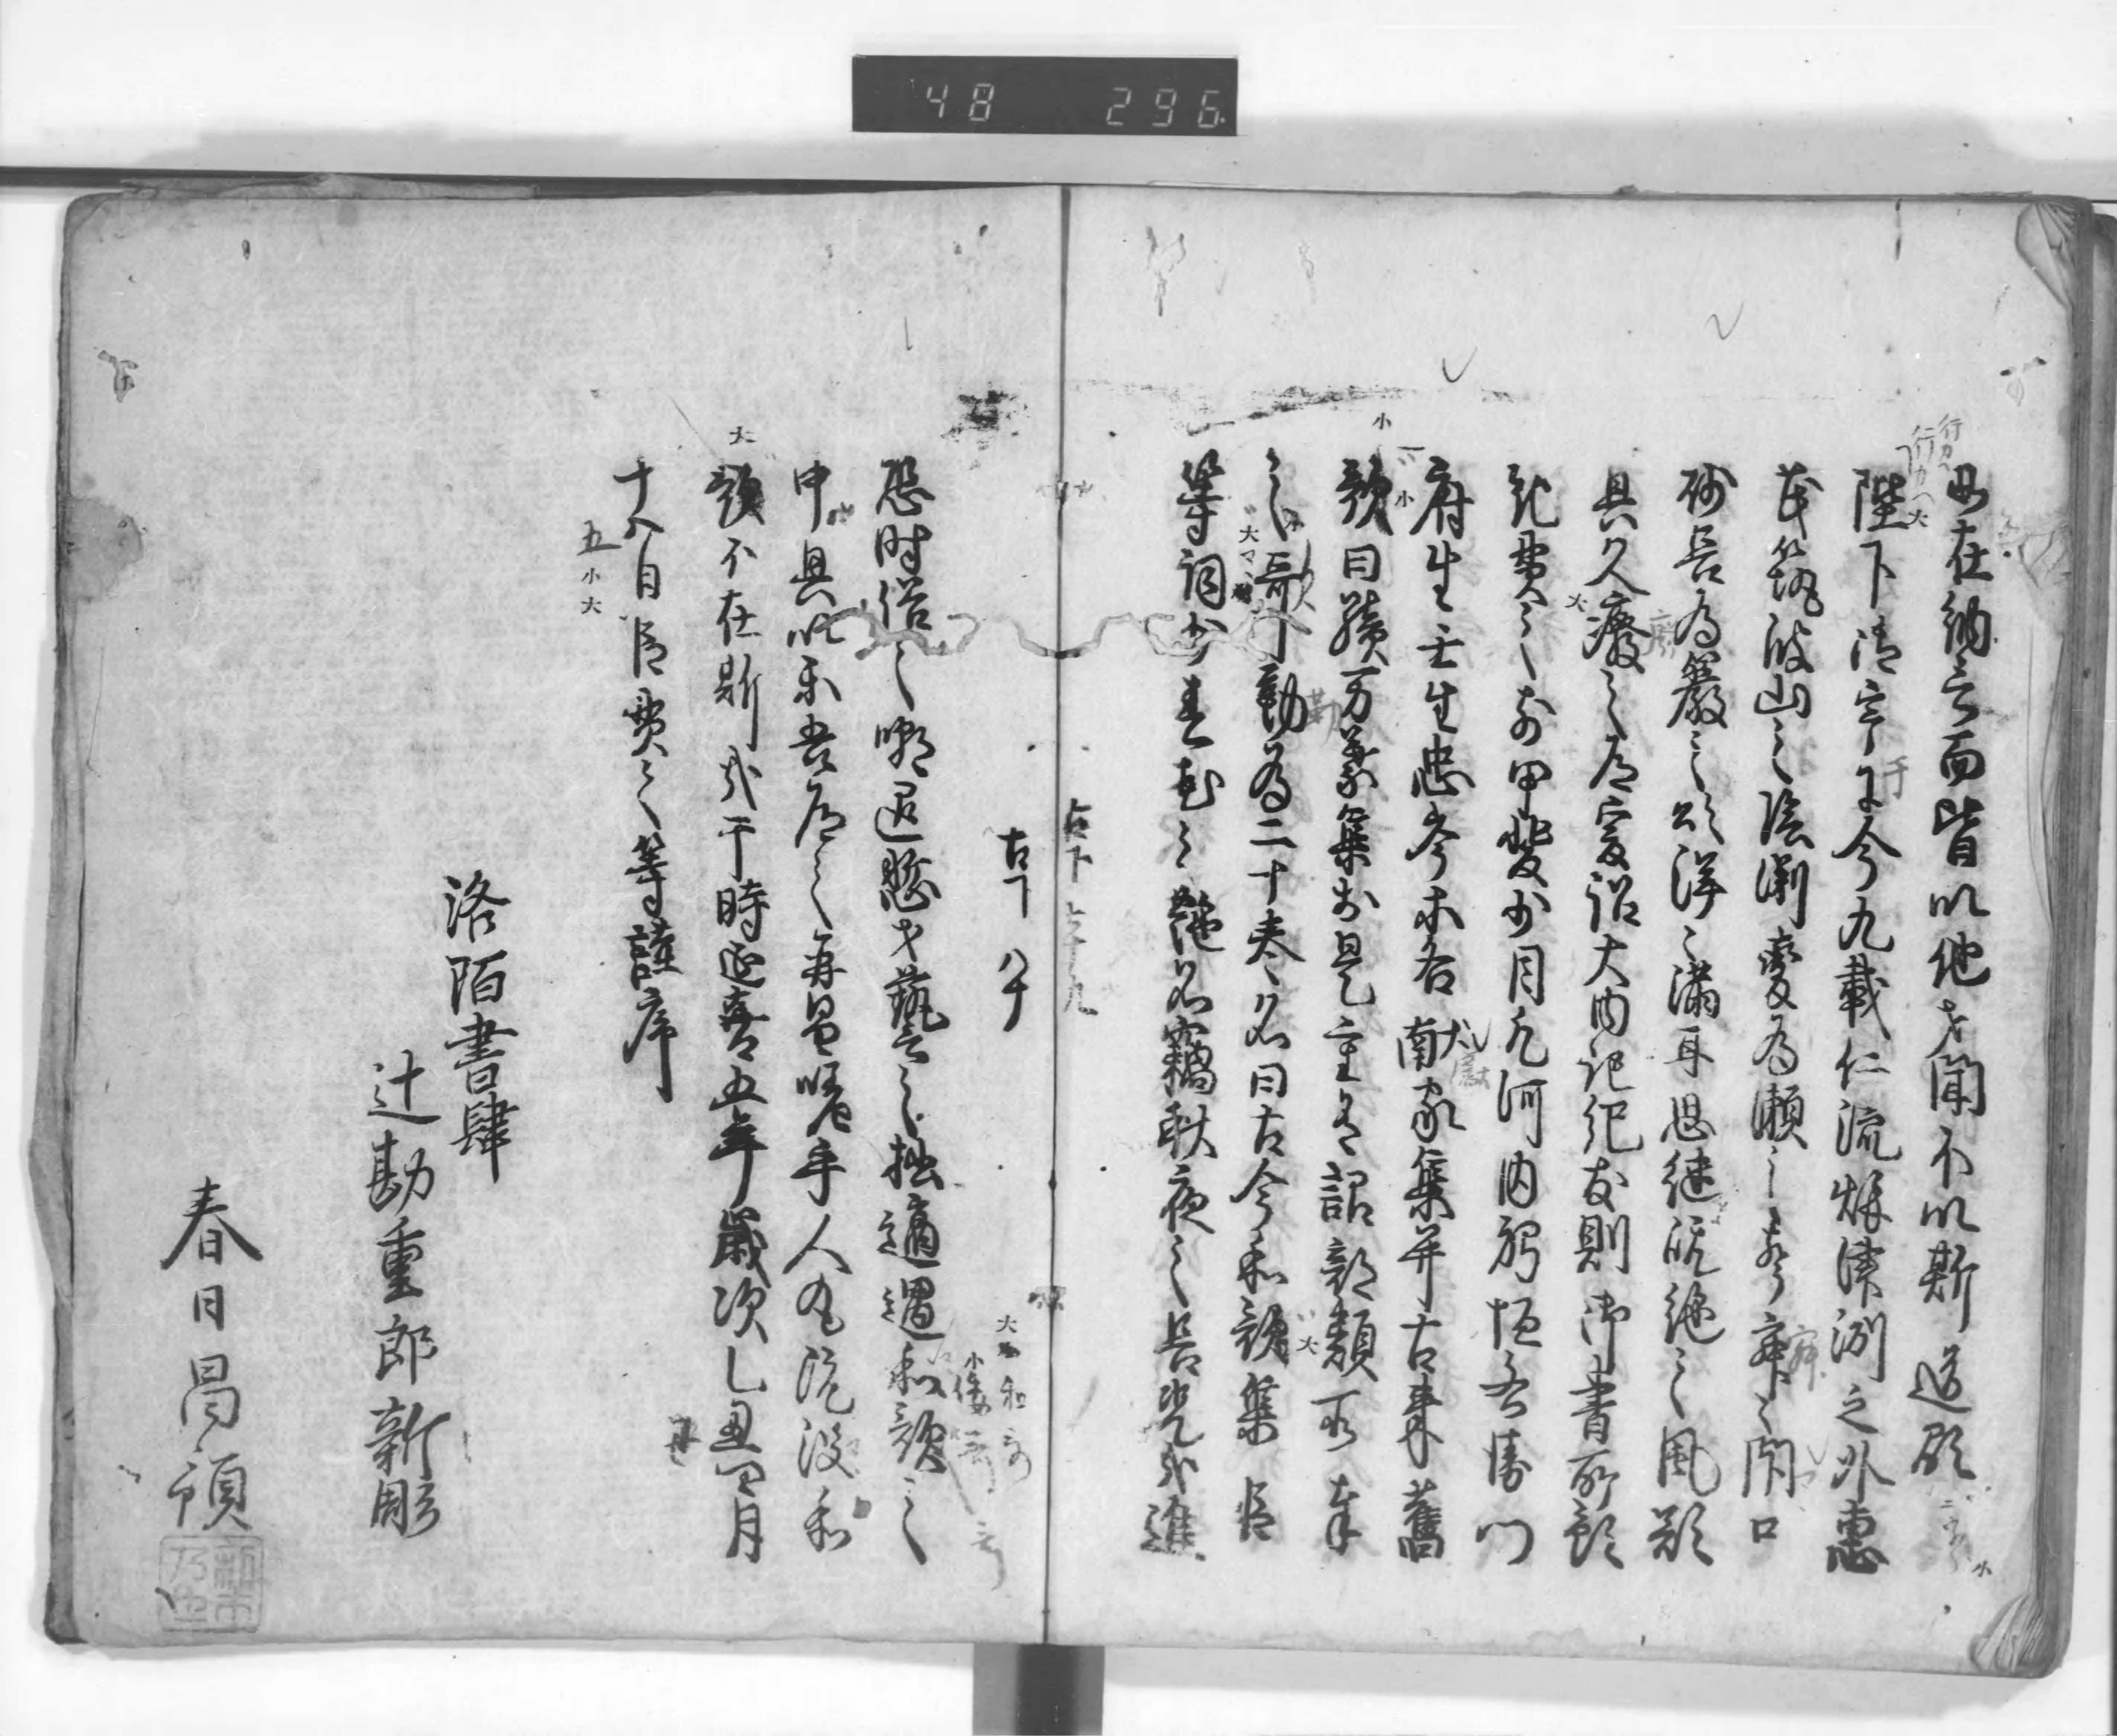 48 296
也在納言而皆以他才聞不以斯道顕
陛下御宇于今九載仁流秋津洲之外恵
茂筑波山之陰淵変為瀬之声寂々閇口
砂長為巌之頌洋々満耳思継既絶之風欲
興久廃之道爰詔大内記紀友則御書所預
紀貫之前甲斐少目凡河内躬恒右衛門
府生壬生忠岑等各献家集并古来旧
歌曰続万葉集於是重有詔部類所奉
之歌勒為二十巻名曰古今和歌集臣
等詞少春花之艶名竊秋夜之長况哉進
古下 八十
恐時俗之嘲退慙才藝之拙適遇和歌之
中興以楽吾道之再昌嗟乎人丸既没和
歌不在斯哉于時延喜五年歳次乙丑四月
十八日臣貫之等謹序
洛陌書肆
辻勘重郎新彫
春日昌預